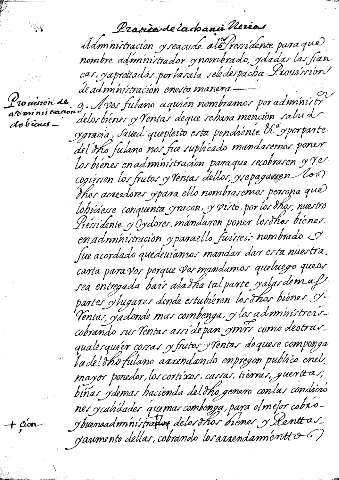 Pratica de la chanci lleria
administracion y sea cido al s.r Presidente para que
nombre administrador y nombrado, y dadas las fian
cas, y aprobadas por la sala se le despacha Provission
de administracion en esta manera
Provision de
administracion
de bienes
A Vos fulano a quien nombramos por administ.or
de los bienes y Rentas de que se hara mencion salud
y gracia, Saved que pleito esta pendiente &.a y por parte
del dho fulano nos fue suplicado mandasemos poner
los bienes en administracion para que se cobrasen y Re
cogiessen los frutos y Rentas dellos, y se pagassen los
dhos acreedores y para ello nombrasemos persona que
lo hiciese con quenta, y racon, y visto, por los dhos, nuestro
Presidente y Oydores, mandaron poner los dhos bienes
en administracion, y para ello fuisteis nombrado y
fue acordado que deviamos mandar dar esta nuestra
carta para Vos porque Vos mandamos que luego que os
sea entregada bais a la dha tal parte y a las demas
partes y lugares donde estubieren los dhos bienes, y
Rentas, y a donde mas combenga, y los administreis
cobrando sus Rentas assi de pan, y mrs como de otras
qualesquier cossas, y frutos y Rentas de que se componga
la del dho fulano arrendando en pregon publico en el
mayor ponedor, los cortixos, cassas, tierras, guerttas,
biñas, y demas hacienda del dho, genero con las condicio
nes y calidades que mas combenga, para el mejor cobro
+ cion.
y buena administra de los dhos bienes y Renttas
y aumento dellas, cobrando los arrendamienttos